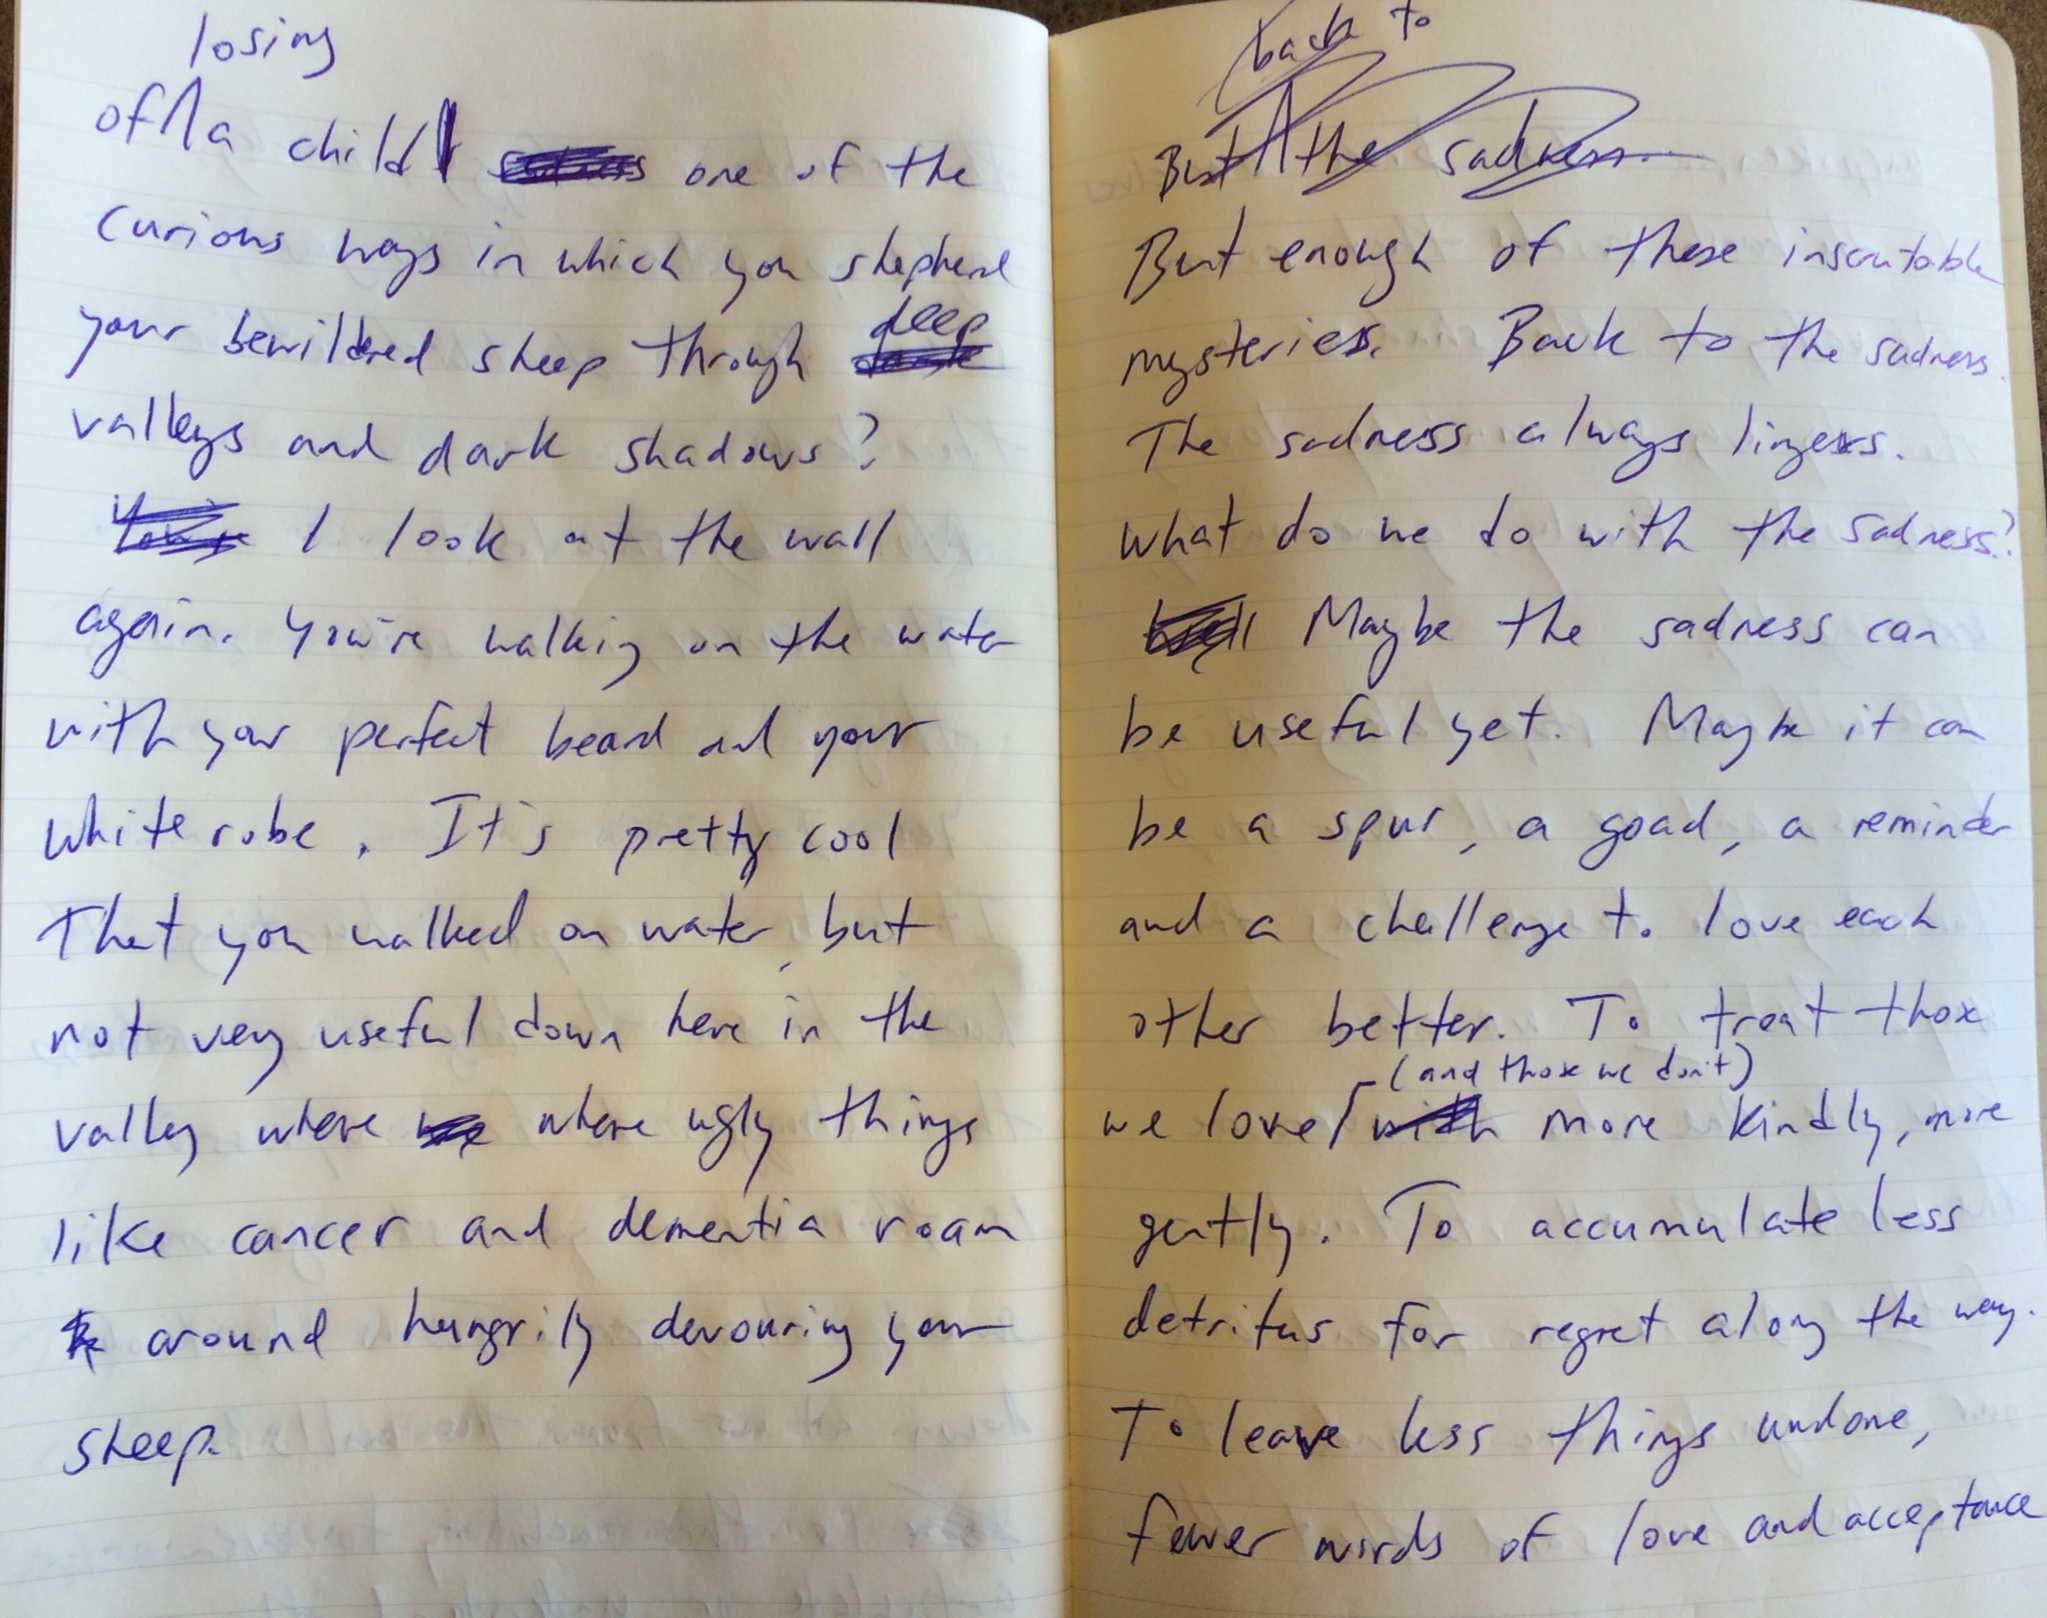 losing
of a child one of the
curious ways in which you shepherd
your bewildered sheep through deep
valleys and dark shadows?
I look at the wall
again. You're walking on the water
with your perfect beard and your
white robe. It's pretty cool
that you walked on water, but
not very useful down here in the
valley where where ugly things
like cancer and dementia roam
around hungrily devouring your
sheep.
back to
But the sadness.
But enough of these inscrutable
mysteries. Back to the sadness.
The sadness always lingers.
What do we do with the sadness?
Maybe the sadness can
be useful yet. Maybe it can
be a spur, a goad, a reminder
and a challenge to love each
other better. To treat those
(and those we don't)
we love with more kindly, more
gently. To accumulate less
detritus for regret along the way.
To leave less things undone,
fewer words of love and acceptance